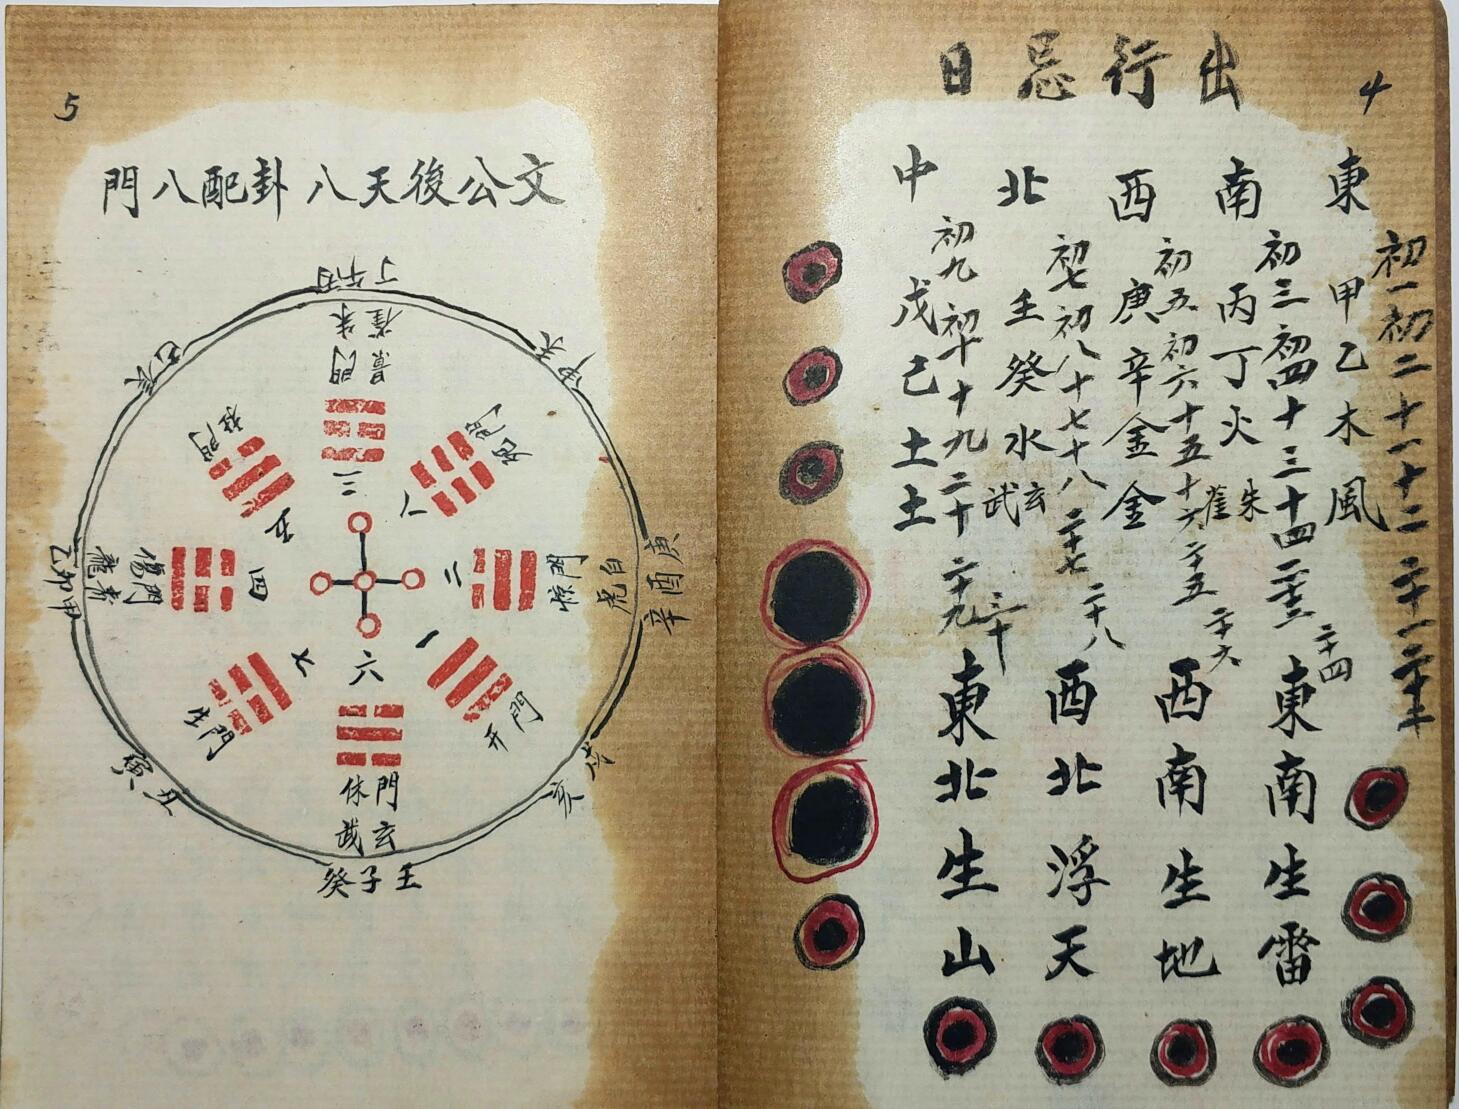 4
出行忌日
東 南 西 北 中
初一初二十一十二二十一二十二
甲乙木風
初三初四十三十四二十三二十四
丙丁火朱雀
初五初六十五十六二十五二十六
庚辛金金
初七初八十七十八二十七二十八
壬癸水玄武
初九初十十九二十二十九三十
戊己土土
東南生雷
西南生地
西北浮天
東北生山
5
文公後天八卦配八門
丁午丙
朱雀
景門
三
未申
死門
八
庚酉辛
白虎
驚門
二
戌亥
開門
一
壬子癸
玄武
休門
六
丑寅
生門
七
甲卯乙
青龍
傷門
四
辰巳
杜門
五